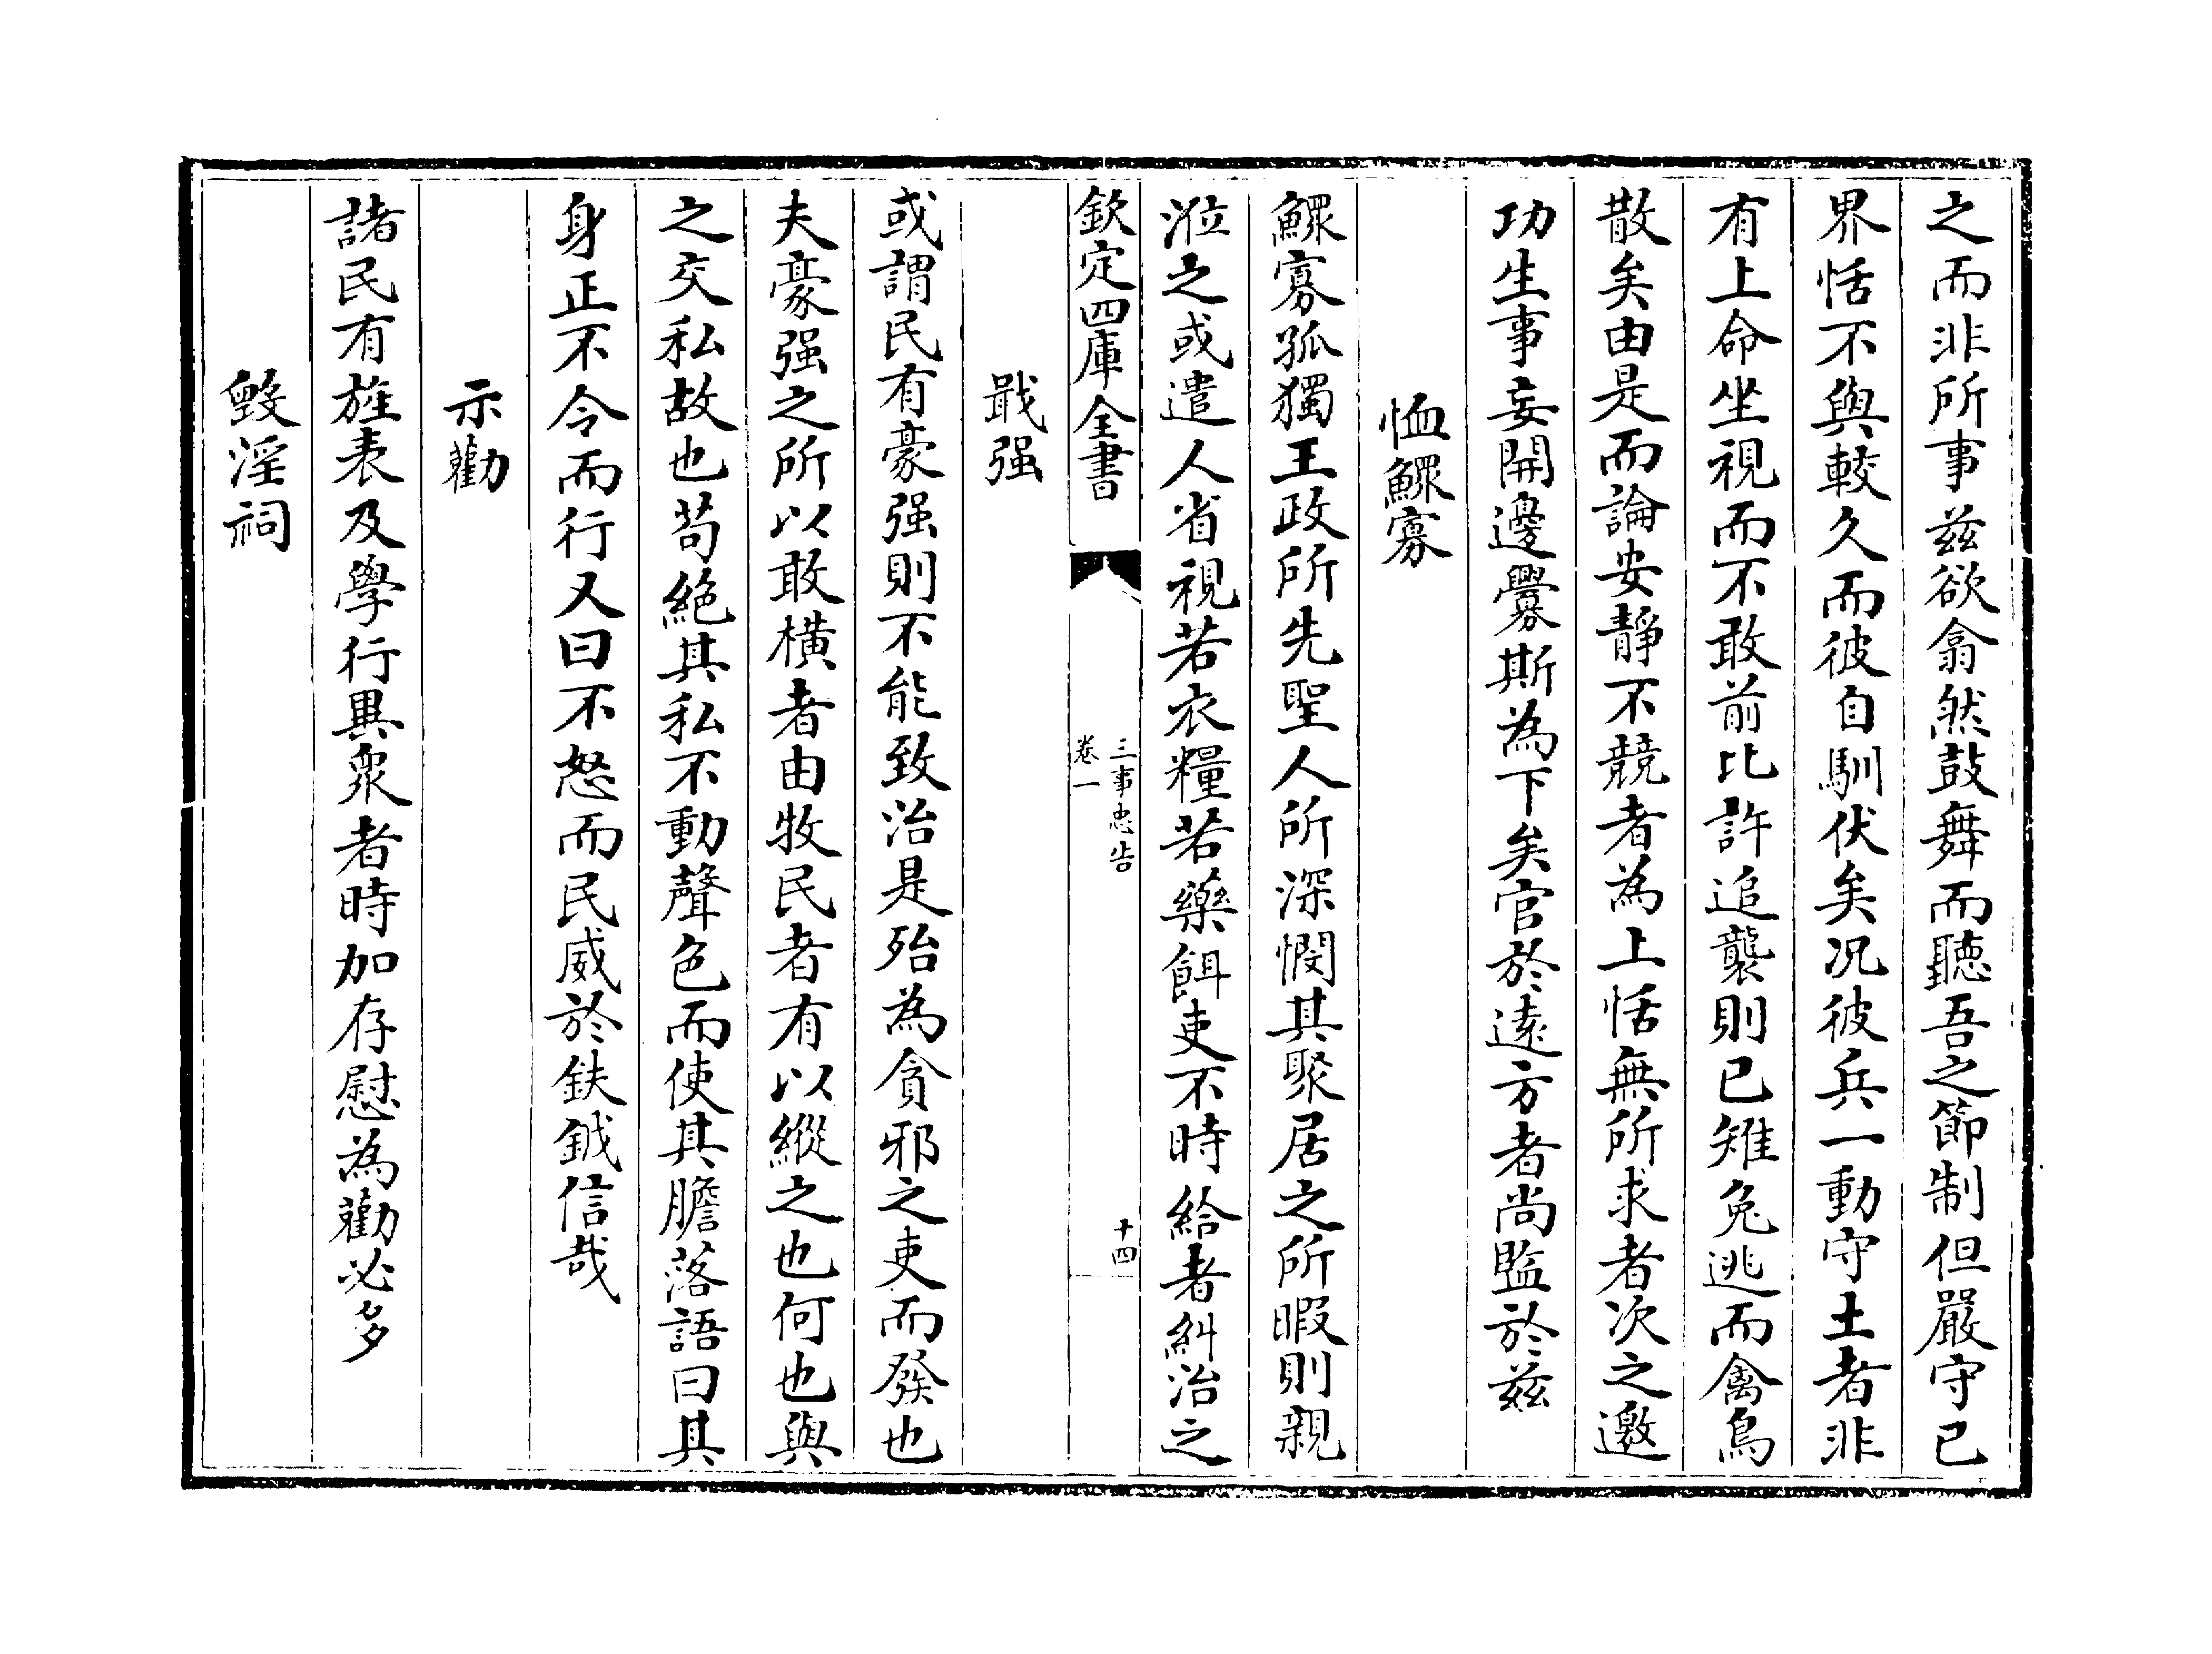 之而非所事兹欲翕然鼓舞而聽吾之節制但嚴守已
界恬不與較久而彼自馴伏矣况彼兵一動守土者非
有上命坐視而不敢前比許追襲則已雉兔逃而禽鳥
散矣由是而論安靜不競者為上恬無所求者次之邀
功生事妄開邊釁斯為下矣官於逺方者尚監於兹
恤鰥寡
鰥寡孤獨王政所先聖人所深憫其聚居之所暇則親
涖之或遣人省視若衣糧若藥餌吏不時給者糾治之
欽定四庫全書
三事忠告
卷一
十四
戢强
或謂民有豪强則不能致治是殆為貪邪之吏而發也
夫豪强之所以敢横者由牧民者有以縱之也何也與
之交私故也苟絶其私不動聲色而使其膽落語曰其
身正不令而行又曰不怒而民威於鈇鉞信哉
示勸
諸民有旌表及學行異衆者時加存慰為勸必多
毁淫祠